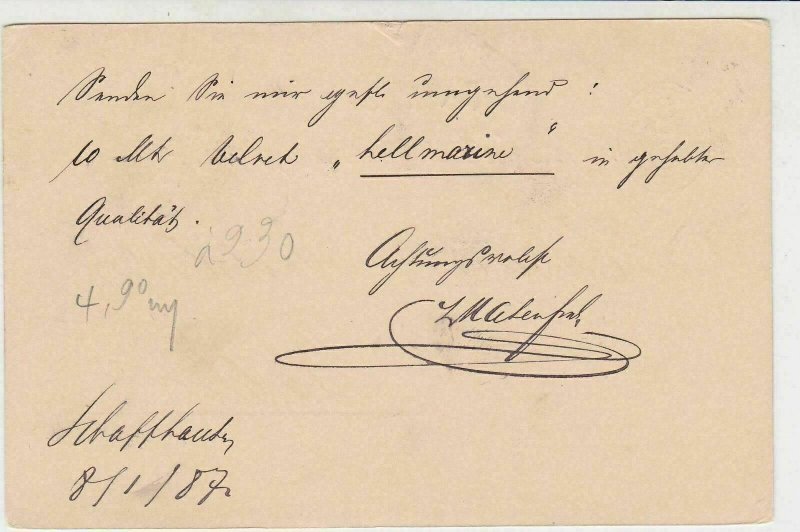 Senden Sie mir gefl. umgehend :
10 Mtr Velvet „hellmarine“ in gehabter
Qualität.
à 930
4,90
Achtungsvollst
Schaffhausen
8/1/87.